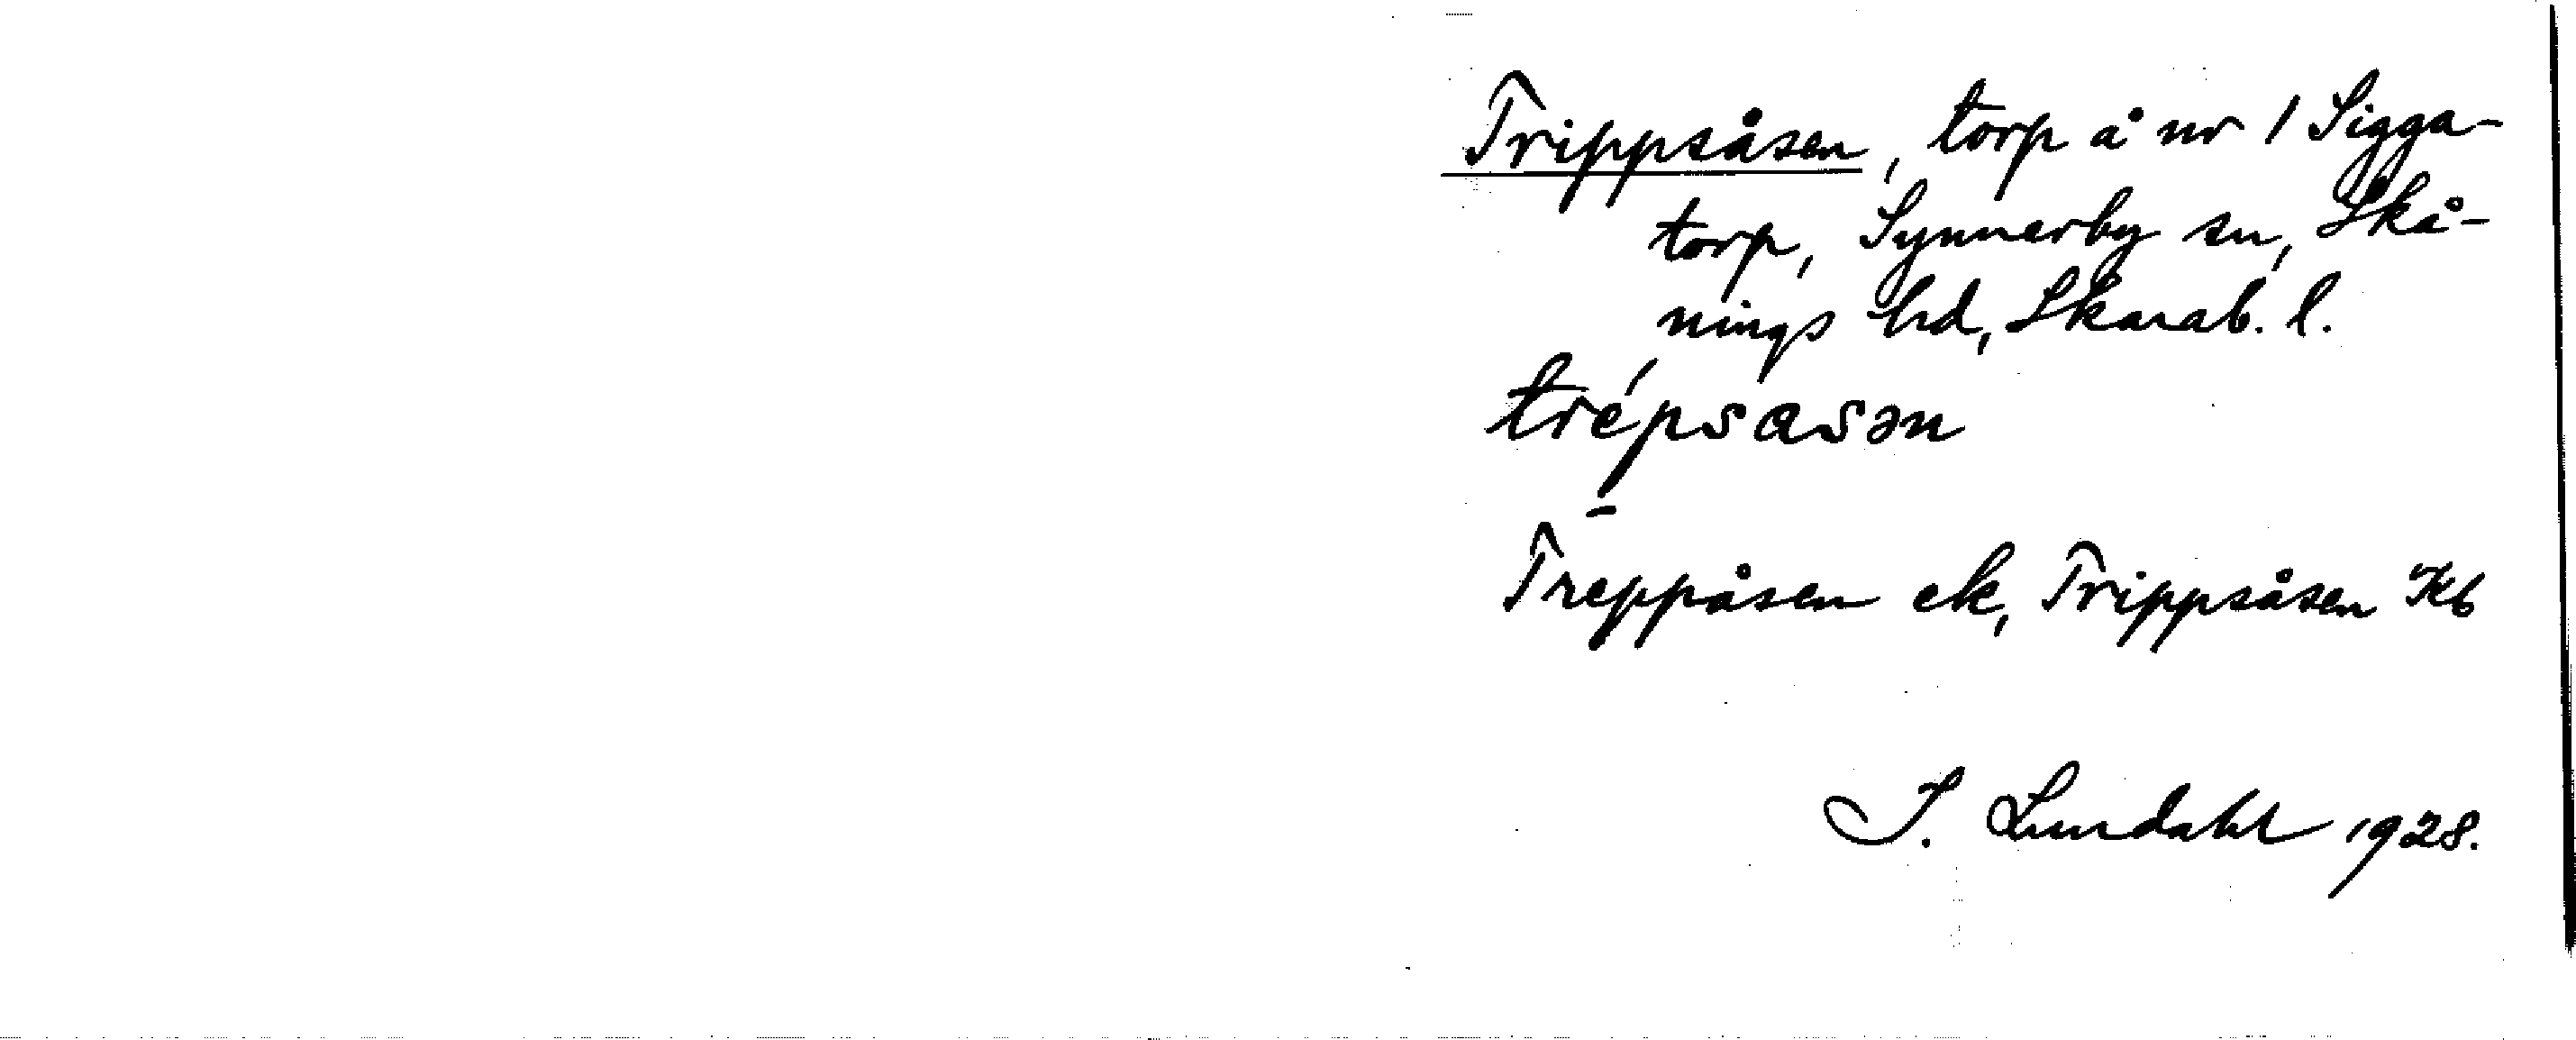 Trippsåsen, torp å nr 1 Sigga-
torp, Synnerby sn, Skå-
nings hd, Skarab. l.
trépsasən
Treppåsen ek, Trippsåsen Kb
I. Lundahl 1928.